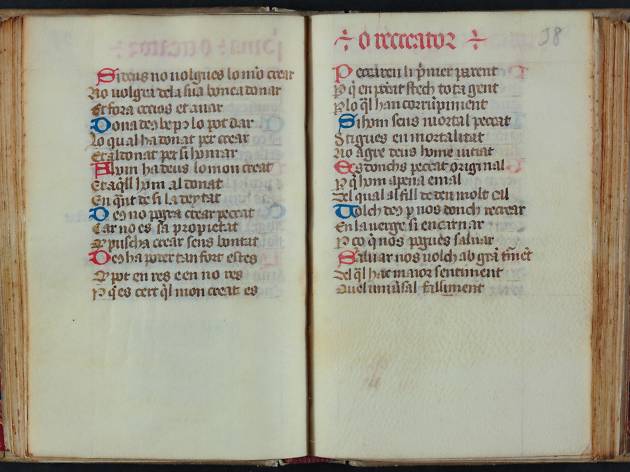 Si deus no uolgues lo mon crear
No uolgra dela sua bonea donar
Et fora occios et auar
Dona deu be p lo pot dar
Lo qual ha donat per crear
Et al donat per si honrar
A hom ha deus lo mon creat
Et aq̄ll hom al donat
En
Deu no pogra crear peccat
Car no es sa proprietat
Ni puscha crear sens bontat
Deu ha poter tan fort estes
Q̄ pot en res e en no res
P q̄ es cert q̄l mon creat es
÷ o recreator ÷ 38
Peccaren li p̄mer parent
P q̄ en peccat stech tota gent
P lo q̄l han corrūpiment
Si hom sens mortal peccat
Stigues en mortalitat
No agre deus home iutiat
Es donchs peccat original
P q̄ hom a pena e mal
Del qual al fill de deu molt cal
Volch deu p nos donch recrear
En la uerge si encarnar
P ço q̄ nos pogues saluar
Saluar nos volch ab grā
Del q̄l hac maior sentiment
Quel uniūsal falliment